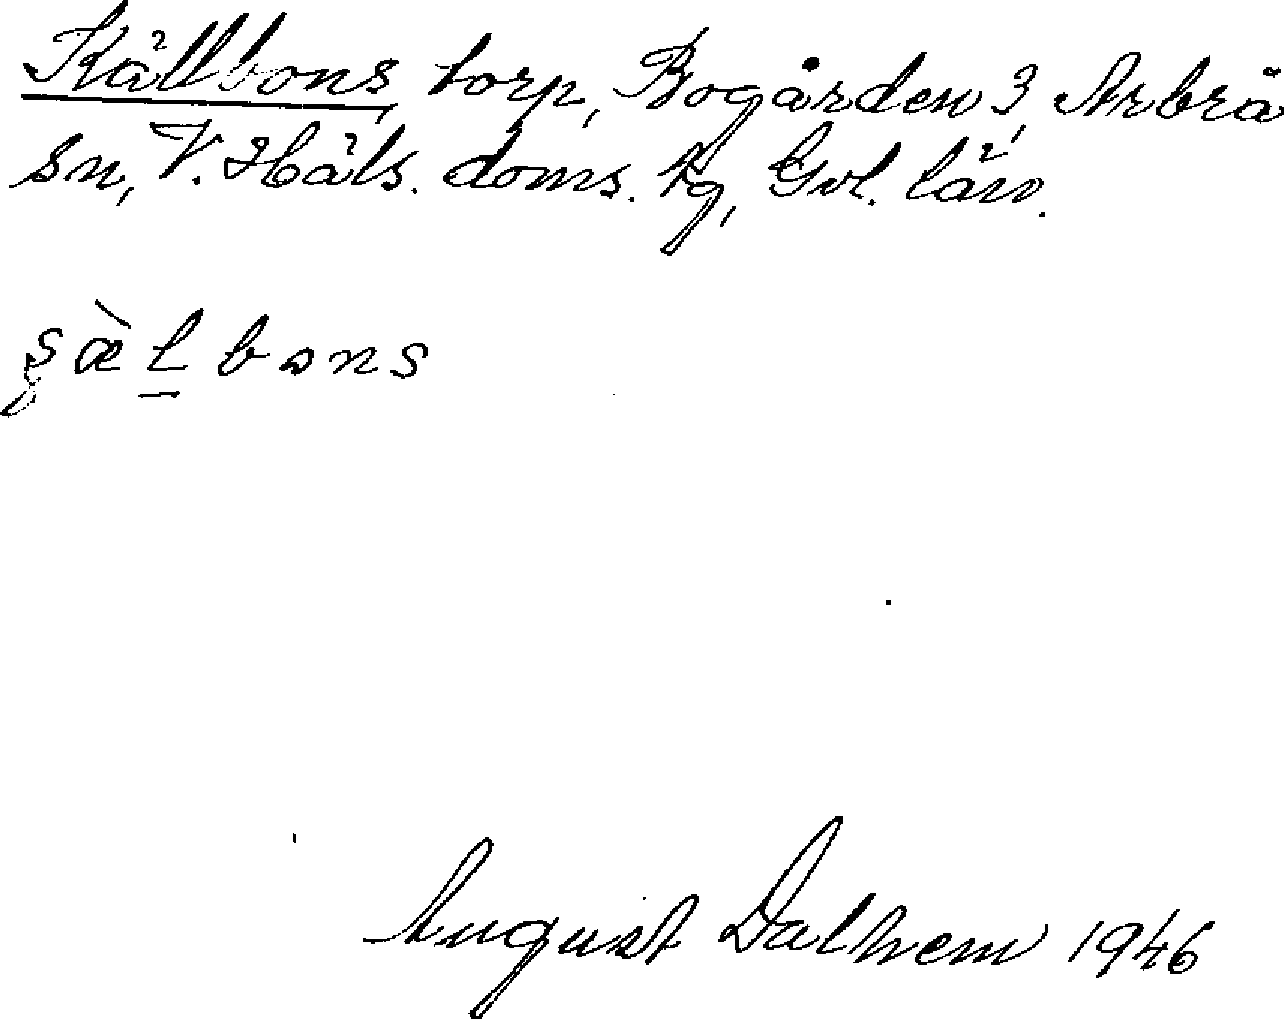 Källbons, torp, Bogården 3, Arbrå
sn, V. Häls. doms. tg, Gvl. län.
s̨æ̀l̲bons
August Dalhem 1946